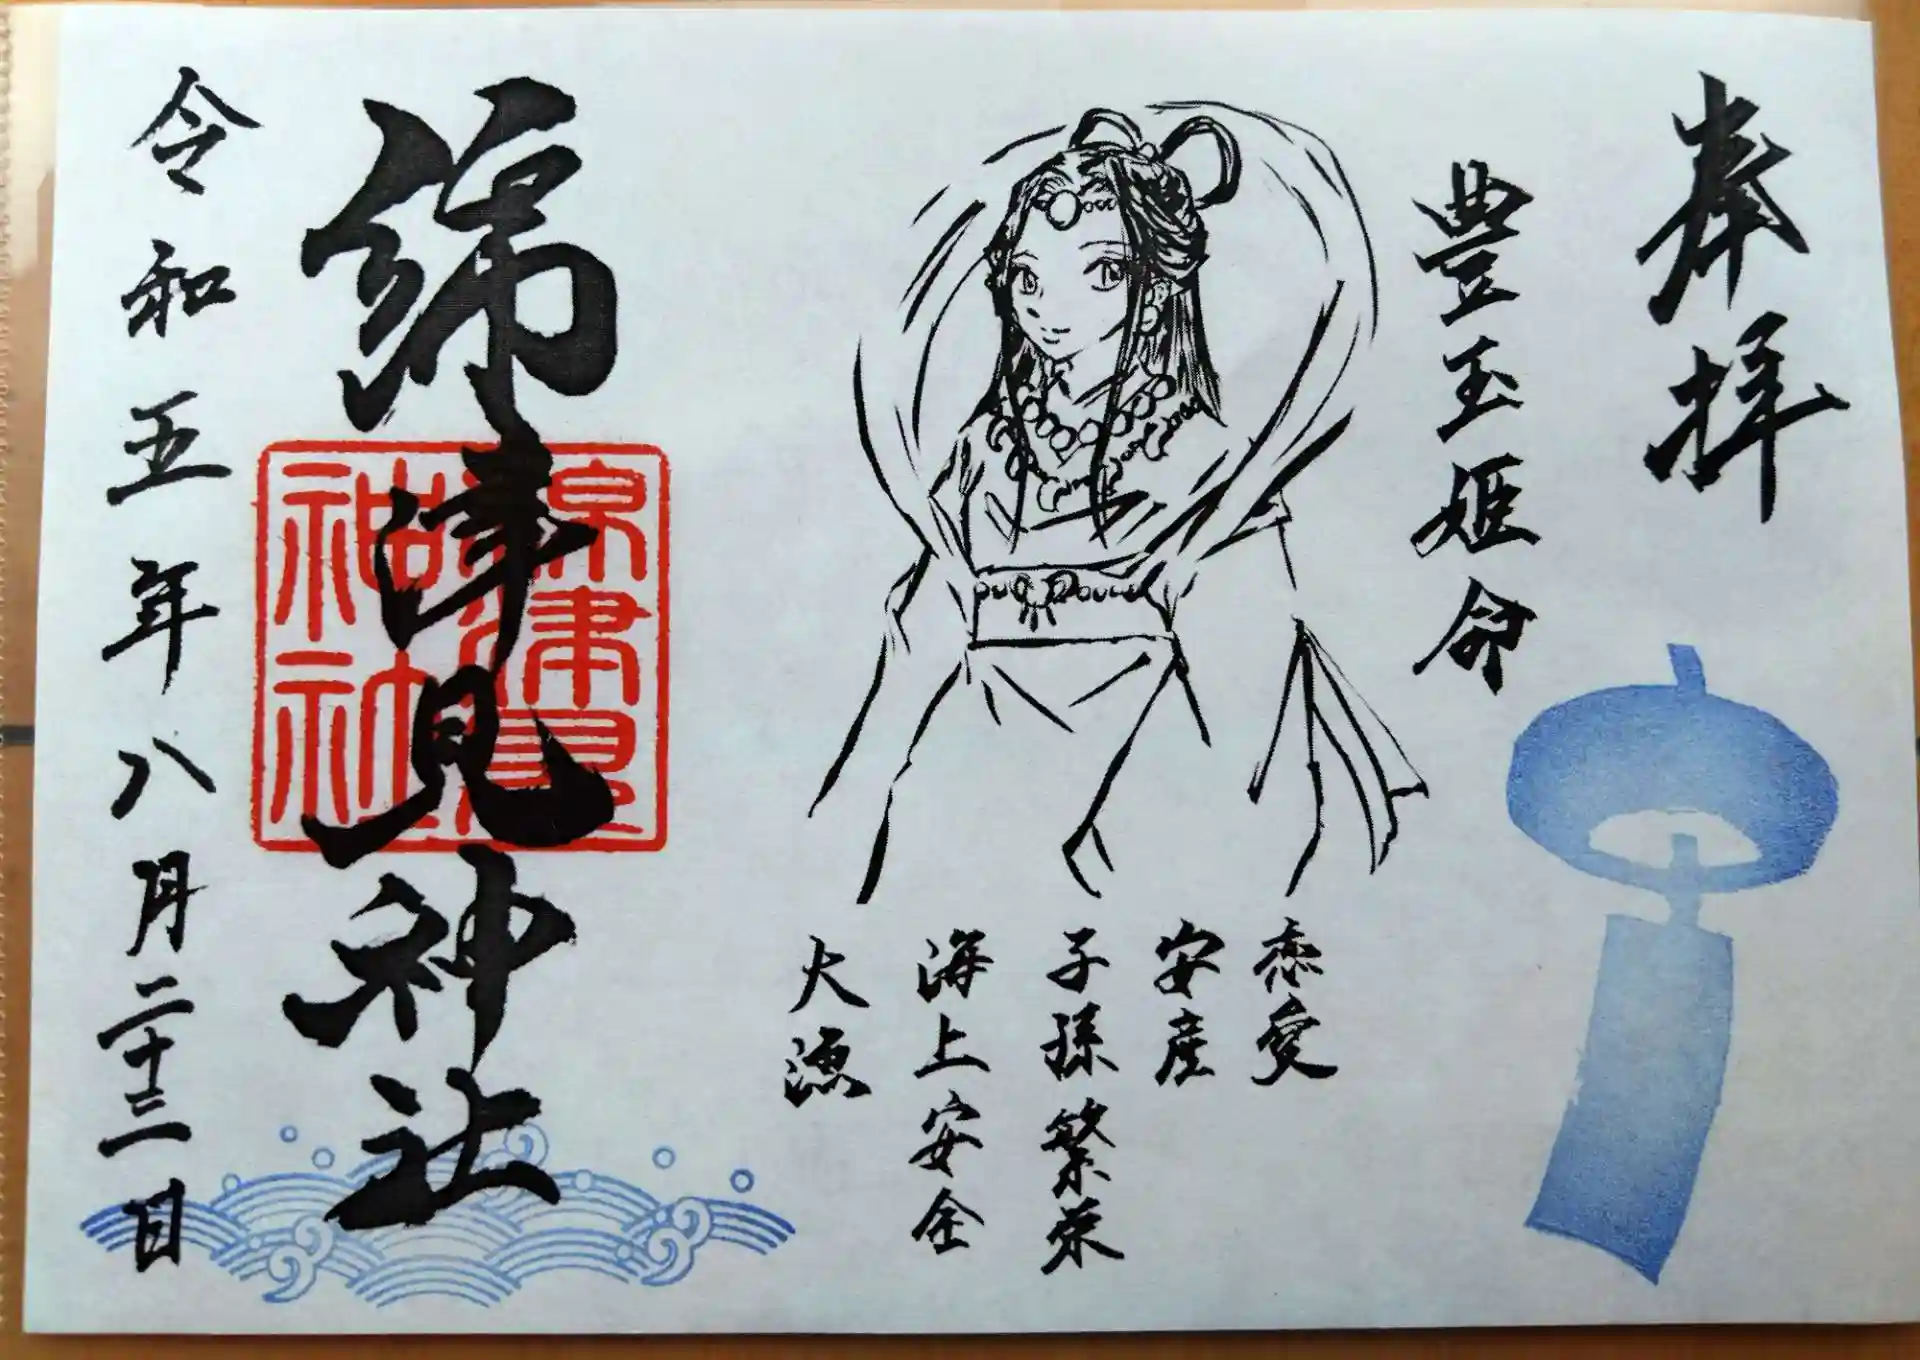 奉拝
豊玉姫命
恋愛
安産
子孫繁栄
海上安全
大漁
綿津見神社
令和五年八月二十三日